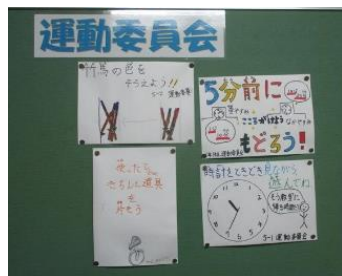 運動委員会
竹馬の色を
そろえよう!!
5-2 運動委員
5分前に
こころがけよう
もどろう!
使ったら
きちんと道具
を
片そう
時計をときどき見ながら
遊んでね
5-1 運動委員会